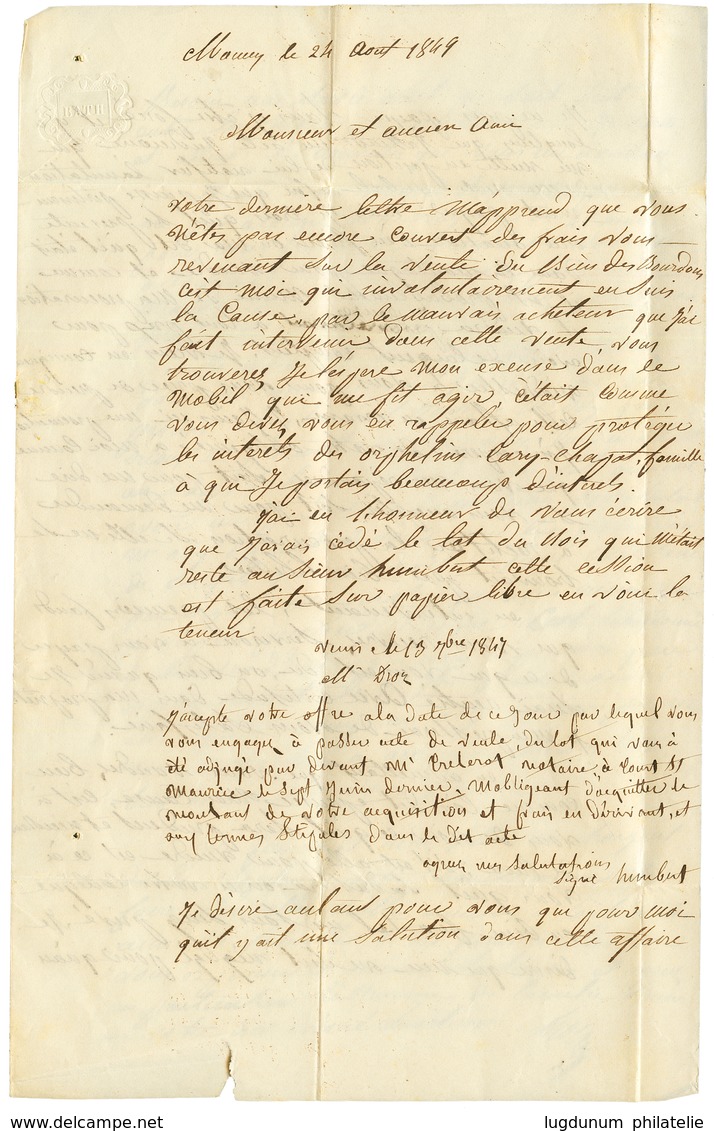 le 24 Aout 1849
Monsieur et ancien Ami
votre dernière lettre m'apprend que vous
n'êtes pas encore couvert des frais vous
revenant sur la vente du Bien des Bourdons
c'est moi qui involontairement en suis
la Cause, par le mauvais acheteur que j'ai
fait intervenir dans cette vente, vous
trouverez, Je l'espere mon excuse dans le
mobil, qui me fit agir, c'était comme
vous devez vous en rappeler pour protéger
les interêts des orphelins famille
à qui Je portais beaucoup d'interêt.
J'ai eu l'honneur de vous écrire
que J'avais cédé le lot du Bois qui m'était
resté au sieur humbert cette cession
est faite sur papier libre en voici la
teneur
le 13 7bre 1847
Mr Droz
J'accepte votre offre a la date de ce Jour par lequel vous
vous engagez à passer acte de vente, du lot qui vous à
été adjugé par devant Mr notaire à Court St
Maurice le sept Juin dernier, M'obligeant d'acquitter le
montant de votre acquisition et frais en dérivant, et
aux termes Stipulés dans le dit acte
agreez mes salutations
signé humbert
Je désire autant pour vous que pour moi
qu'il y ait une solution dans cette affaire
lugdunum philatelie